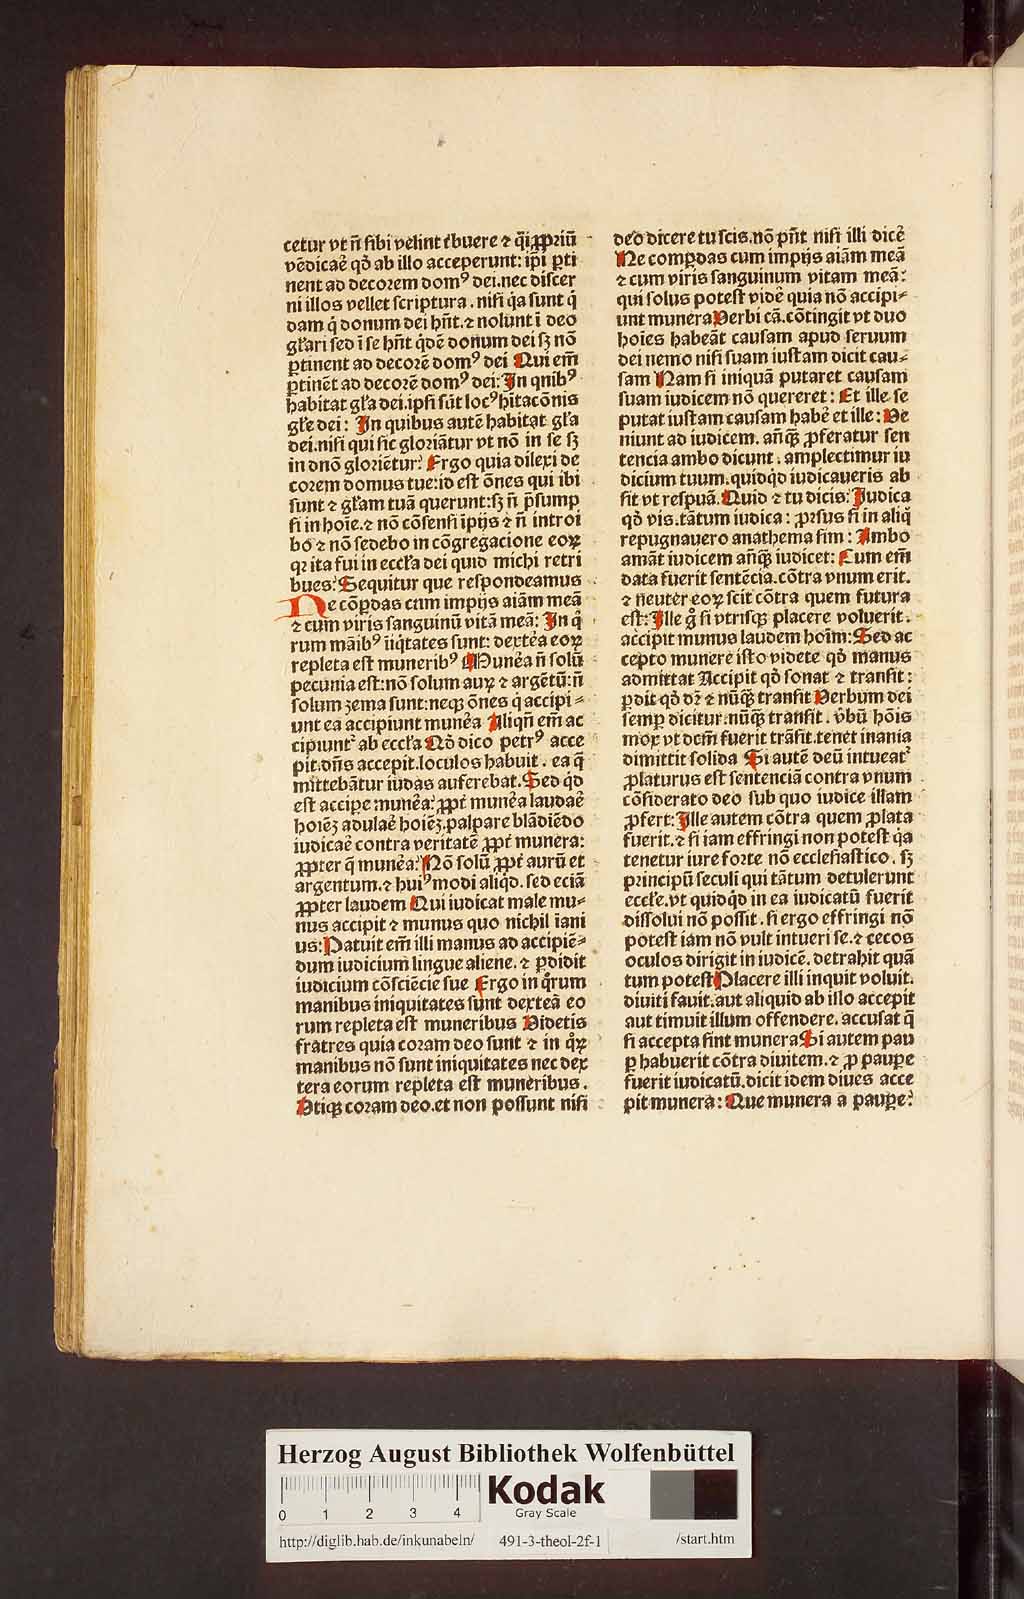 cetur vt n̄ sibi velint t̓buere ⁊ q̄i ꝓpriū
vēdicaē qd̓ ab illo acceperunt: ip̄i ꝑti
nent ad decorem domꝰ dei.nec discer
ni illos vellet scriptura. nisi q̓a sunt q̓
dam q̓ donum dei hn̄t.⁊ nolunt ī deo
gl̓ari sed ī se hn̄t q̓dē donum dei sꝫ nō
ꝑtinent ad decorē domꝰ dei Qui em̄
ꝑtinēt ad decorē domꝰ dei: In qnibꝰ
habitat gl̓a dei.ipsi sūt locꝰ hitacōnis
gl̓e dei: In quibus autē habitat gl̓a
dei.nisi qui sic gloriātur vt nō in se sꝫ
in dnō gloriētur: Ergo quia dilexi de
corem domus tue:id est ōnes qui ibi
sunt ⁊ gl̓am tuā querunt:sꝫ n̄ p̄sump
si in hoīe.⁊ nō cōsensi īpijs ⁊ n̄ introi
bo ⁊ nō sedebo in cōgregacione eoꝝ
qꝛ ita fui in eccl̓a dei quid michi retri
bues: Sequitur que respondeamus
Ne cōꝑdas cum impijs aīam meā
⁊ cum viris sanguinū vitā meā: In q̓
rum māibꝰ īiq̓tates sunt: dextēa eoꝝ
repleta est muneribꝰ Munēa n̄ solū
pecunia est:nō solum auꝝ ⁊ argētū:n̄
solum zema sunt:neqꝫ ōnes q̓ accipi⸗
unt ea accipiunt munēa Aliqn̄ em̄ ac
cipiunt̓ ab eccl̓a Qd̓ dico petrꝰ acce
pit.dn̄s accepit.loculos habuit. ea q̄
mittebātur iudas auferebat. Sed q̓d
est accipe munēa: ꝓpt̓ munēa laudaē
hoiēꝫ adulaē hoiēꝫ.palpare blādiēdo
iudicaē contra veritatē ꝓpt̓ munera:
ꝓpter q̄ munēa: Nō solū ꝓpt̓ aurū et
argentum.⁊ huiꝰmodi aliq̓d. sed eciā
ꝓpter laudem Qui iudicat male mu⸗
nus accipit ⁊ munus quo nichil īani
us: Patuit em̄ illi manus ad accipiē⸗
dum iudicium lingue aliene. ⁊ ꝑdidit
iudicium cōsciēcie sue Ergo in q̓rum
manibus iniquitates sunt dexteā eo
rum repleta est muneribus Videtis
fratres quia coram deo sunt ⁊ in q̓ꝝ
manibus nō sunt iniquitates nec dex
tera eorum repleta est muneribus.
Vtiqꝫ coram deo.et non possunt nisi
deo dicere tu scis.nō pn̄t nisi illi dicē
Ne comꝑdas cum impijs aīam meā
⁊ cum viris sanguinum vitam meā:
qui solus potest vidē quia nō accipi⸗
unt munera Verbi cā.cōtingit vt duo
hoīes habeāt causam apud seruum
dei nemo nisi suam iustam dicit cau⸗
sam Nam si iniquā putaret causam
suam iudicem nō quereret: Et ille se
putat iustam causam habē et ille: Ve
niunt ad iudicem. an̄qꝫ ꝓferatur sen
tencia ambo dicunt. amplectimur iu
dicium tuum.quidq̓d iudicaueris ab
sit vt respuā. Quid ⁊ tu dicis: Iudica
qd̓ vis.tātum iudica: ꝓrsus si in aliq̓
repugnauero anathema sim: Ambo
amāt iudicem an̄qꝫ iudicet: Cum em̄
data fuerit sentēcia.cōtra vnum erit.
⁊ neuter eoꝝ scit cōtra quem futura
est: Ille g̊ si vtrisqꝫ placere voluerit.
accipit munus laudem hoīm: Sed ac
cepto munere isto videte qd̓ manus
admittat Accipit qd̓ sonat ⁊ transit:
ꝑdit qd̓ dꝛ ⁊ nūqꝫ transit Verbum dei
semp dicitur.nūqꝫ transit. v̓bū hōis
mox vt dcm̄ fuerit trāsit.tenet inania
dimittit solida Si autē deū intueat̓
ꝓlaturus est sentenciā contra vnum
cōsiderato deo sub quo iudice illam
ꝓfert: Ille autem cōtra quem ꝓlata
fuerit.⁊ si iam effringi non potest q̓a
tenetur iure forte nō ecclesiastico. sꝫ
principū seculi qui tātum detulerunt
eccl̓e.vt quidq̓d in ea iudicatū fuerit
dissolui nō possit. si ergo effringi nō
potest iam nō vult intueri se.⁊ cecos
oculos dirigit in iudicē. detrahit quā
tum potest Placere illi inquit voluit.
diuiti fauit.aut aliquid ab illo accepit
aut timuit illum offendere. accusat q̄
si accepta sint munera Si autem pau
ꝑ habuerit cōtra diuitem.⁊ ꝓ paupe
fuerit iudicatū.dicit idem diues acce
pit munera: Que munera a paupe:
Herzog August Bibliothek Wolfenbüttel
0 1 2 3 4
Kodak
Gray Scale
http://diglib.hab.de/inkunabeln/ 491-3-theol-2f-1 /start.htm